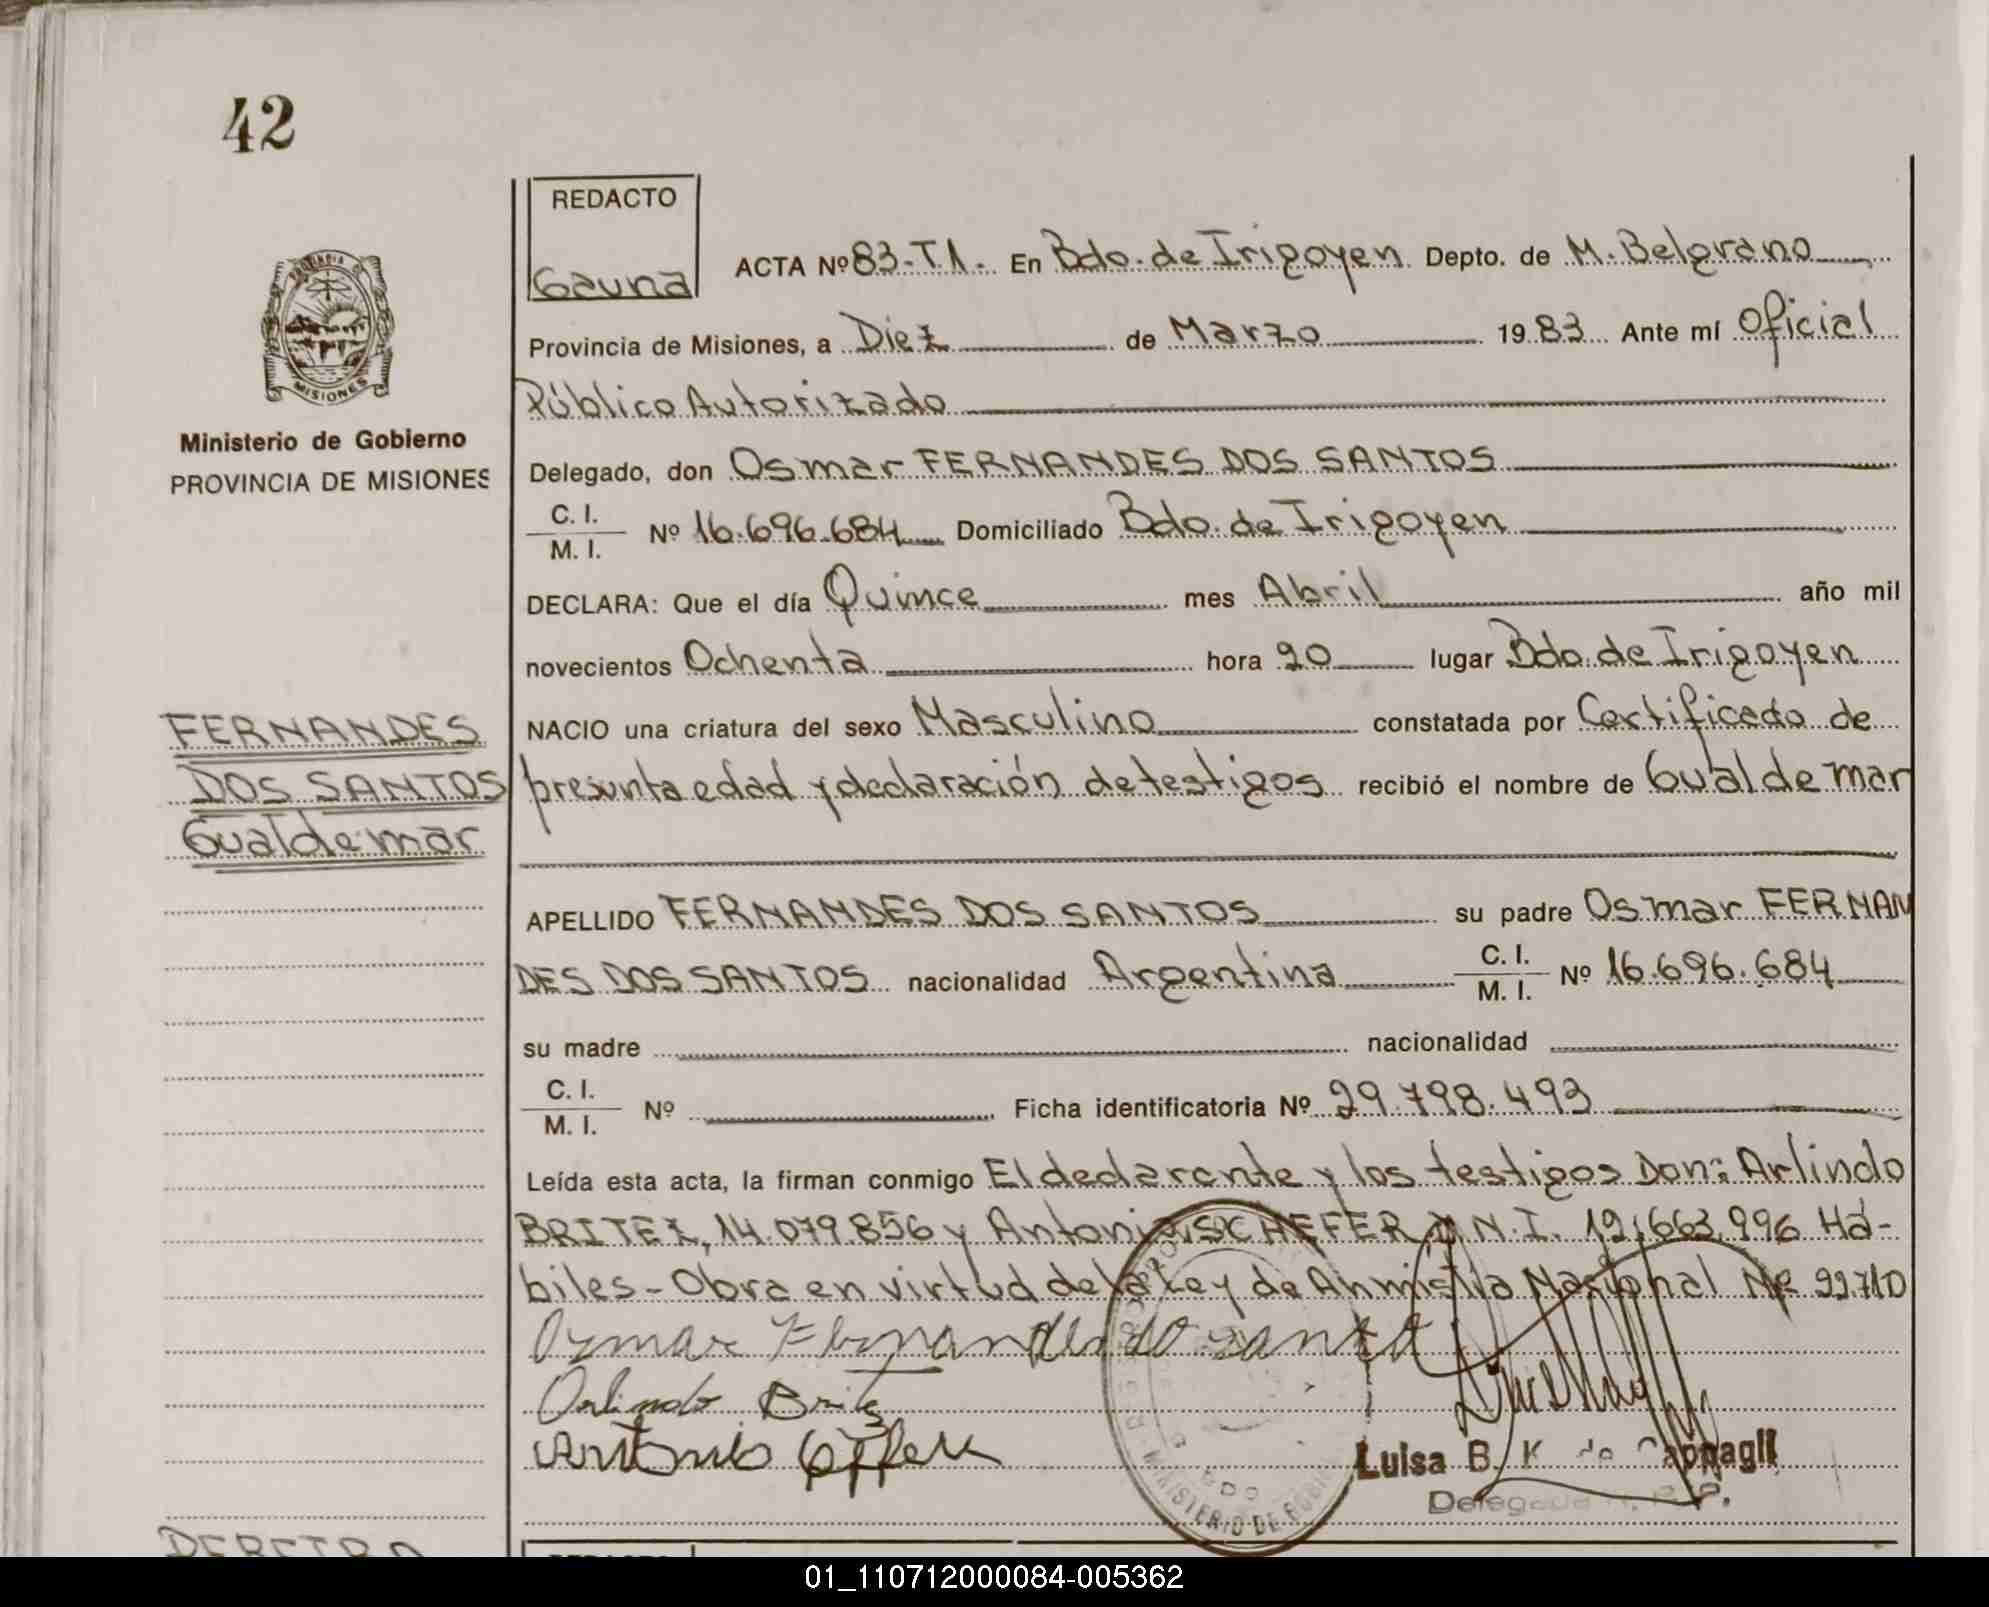 42
REDACTO
Gauna
ACTA Nº 83-T1. En Bdo. de Irigoyen Depto. de M. Belgrano
Provincia de Misiones, a Diez de Marzo 1983 Ante mí Oficial
Público Autorizado
Delegado, don Osmar FERNANDES DOS SANTOS
C. I.
M. I.
Nº 16.696.684 Domiciliado Bdo. de Irigoyen
DECLARA: Que el día Quince mes Abril año mil
novecientos Ochenta hora 20 lugar Bdo. de Irigoyen
NACIO una criatura del sexo Masculino constatada por Certificado de
presunta edad y declaración de testigos recibió el nombre de Gualdemar
APELLIDO FERNANDES DOS SANTOS su padre Osmar FERNAN
DES DOS SANTOS nacionalidad Argentina C. I. M. I. Nº 16.696.684
su madre nacionalidad
C. I.
M. I.
Nº Ficha identificatoria Nº 29.798.493
Leída esta acta, la firman conmigo El declarante y los testigos Don: Arlindo
BRITEZ, 14.079.856 y Antonio SCHEFER D.N.I. 12.663.996 Há-
biles - Obra en virtud de la Ley de Anmistia Nacional Nº 22.710
Osmar Fernandes do santo
Orlindo Britez
Antonio
Luisa B. K. de
Delegada
MINISTERIO DE
PROVINCIA DE
MISIONES
Ministerio de Gobierno
PROVINCIA DE MISIONES
FERNANDES
DOS SANTOS
Gualdemar
REDACTO
01_110712000084-005362